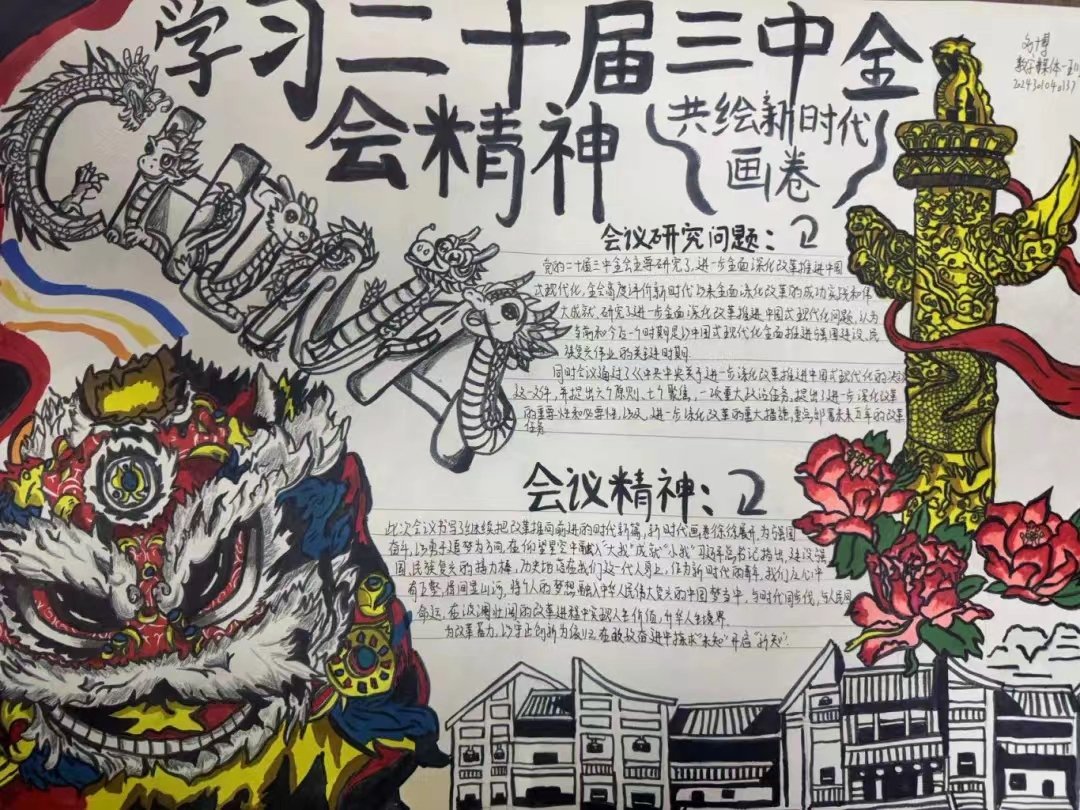 学习二十届三中全
会精神
共绘新时代
画卷
数字媒体
202430104013
CHINA
会议研究问题:
党的二十届三中全会主要研究了进一步全面深化改革推进中国
式现代化,全会高度评价新时代以来全面深化改革的成功实践和伟
大成就,研究了进一步全面深化改革推进中国式现代化问题,认为
当前和今后一个时期是以中国式现代化全面推进强国建设、民
族复兴伟业的关键时期.
同时会议通过了《中共中央关于进一步深化改革推进中国式现代化的决
这一文件,并提出六个原则,七个聚焦,一项重大政治任务,提出了进一步深化改革
的重要性和必要性,以及进一步深化改革的重大举措,重点部署未来五年的改革
任务
会议精神:
此次会议书写继续把改革推向前进的时代新篇,新时代画卷徐徐展开,为强国
奋斗,以勇于追梦为向,在仰望星空中融入"大我"成就"小我"习近平总书记指出,建设强
国,民族复兴的接力棒,历史地落在我们这一代人身上,作为新时代的青年,我们应心中
有丘壑,眉间显山河,将个人的梦想融入中华人民伟大复兴的中国梦当中,与时代同步伐,与人民同
命运,在波澜壮阔的改革进程中实现人生价值,升华人生境界.
为改革蓄力,以守正创新为
在敢改奋进中探求"未知"开启"新知".